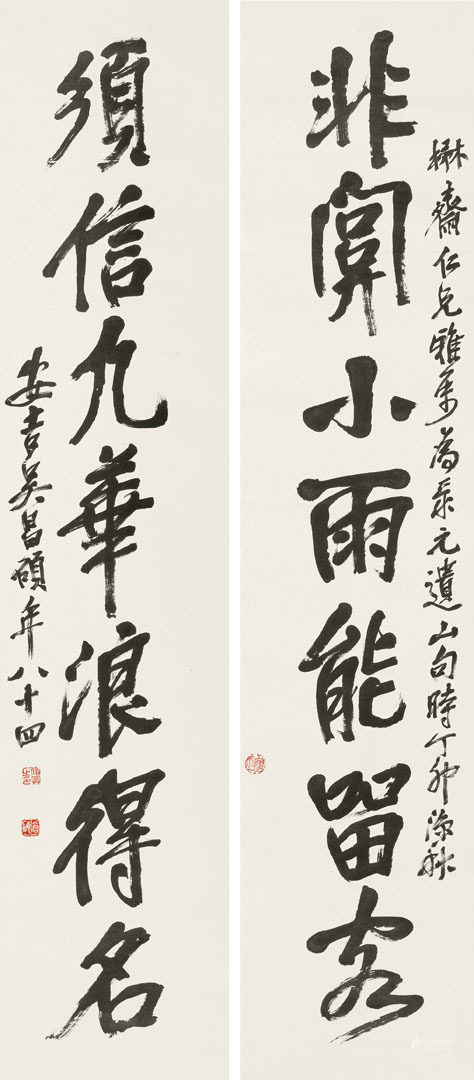 楙齋仁兄雅屬為集元遺山句時丁卯深秋
非關小雨能留客
須信九華浪得名
安吉吳昌碩年八十四